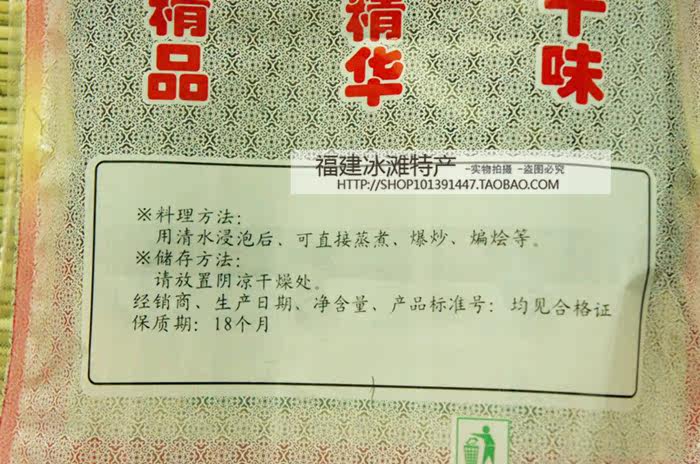 精品
精华
干味
福建冰滩特产
-实物拍摄 -盗图必究
HTTP://SHOP101391447.TAOBAO.COM
※料理方法:
用清水浸泡后、可直接蒸煮、爆炒、煸烩等。
※储存方法:
请放置阴凉干燥处。
经销商、生产日期、净含量、产品标准号: 均见合格证
保质期: 18个月